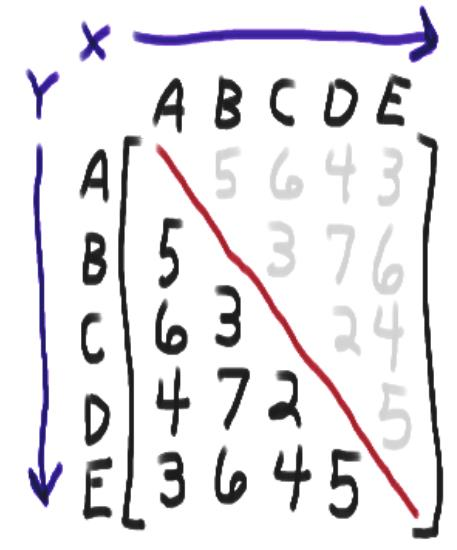 X
Y
A B C D E
A 5 6 4 3
B 5 3 7 6
C 6 3 2 4
D 4 7 2 5
E 3 6 4 5